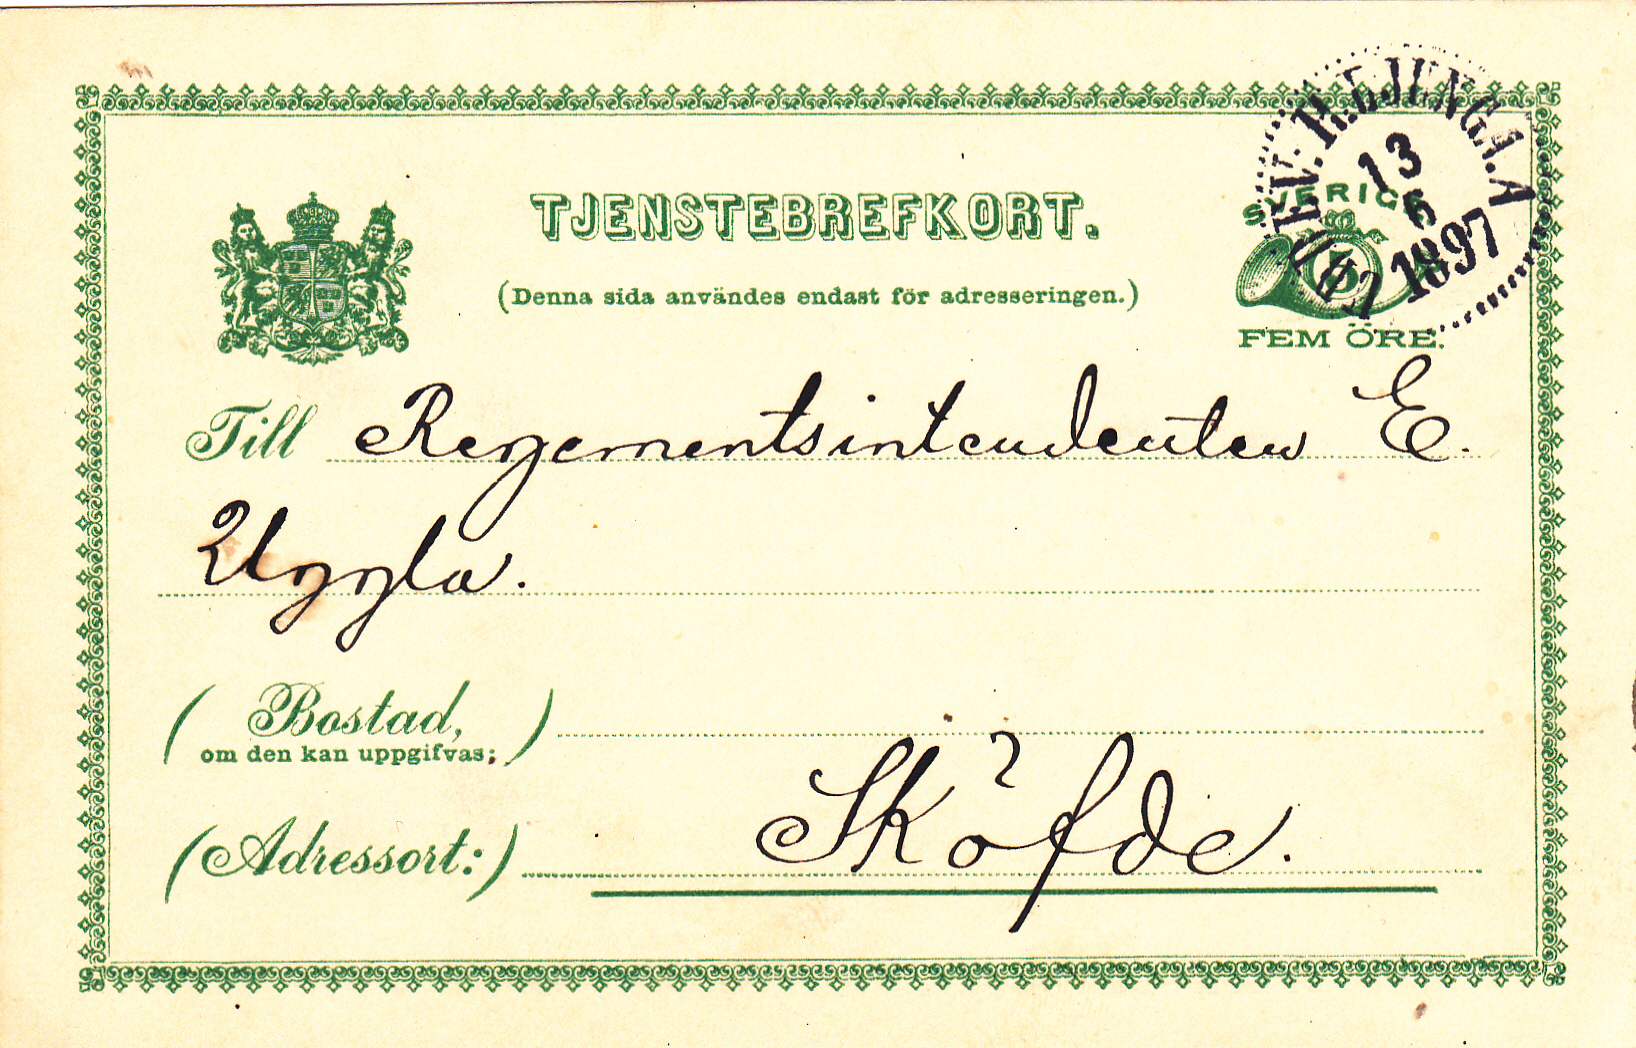 TJENSTEBREFKORT.
(Denna sida användes endast för adresseringen.)
SVERIGE
5
FEM ÖRE.
13
6
1897
Till Regementsintendenten E.
Uggla.
(Bostad,
om den kan uppgifvas:)
(Adressort:) Sköfde.